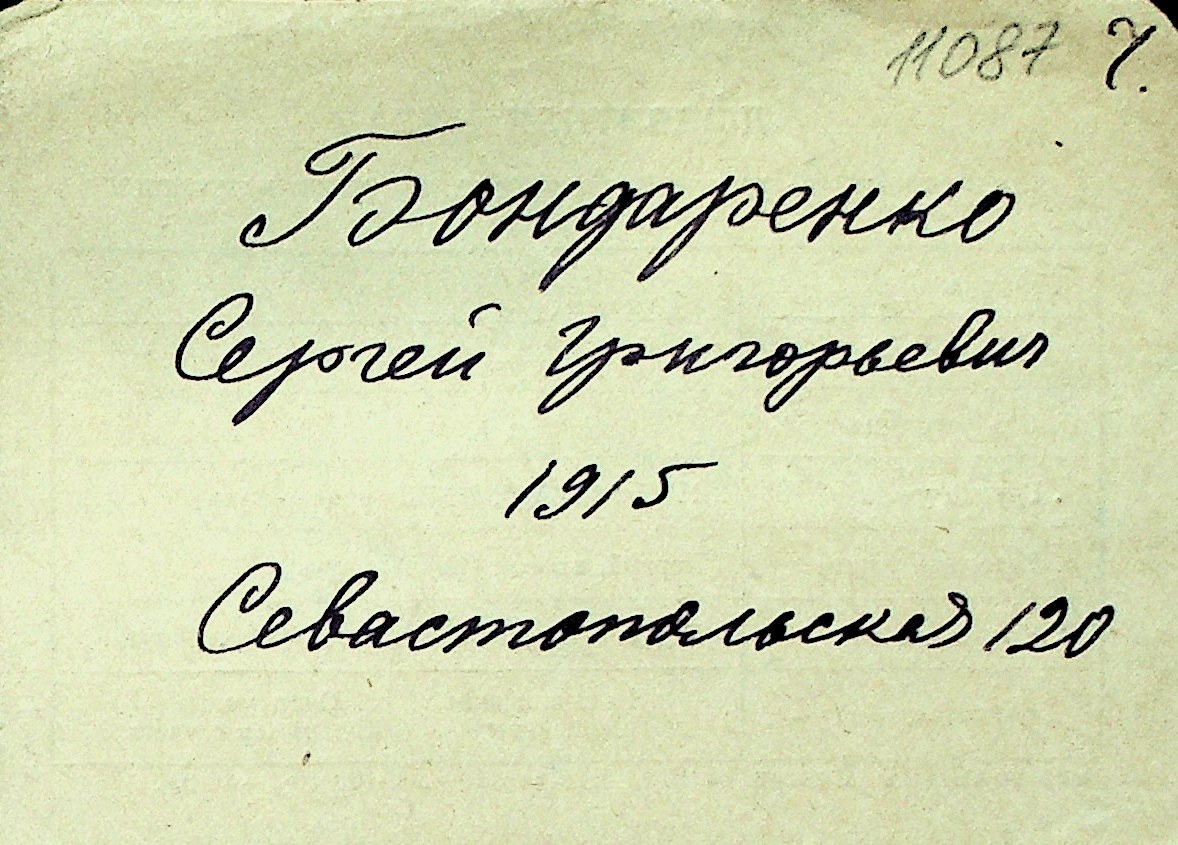 11087 7.
Бондаренко
Сергей Григорьевич
1915
Севастопольская 120